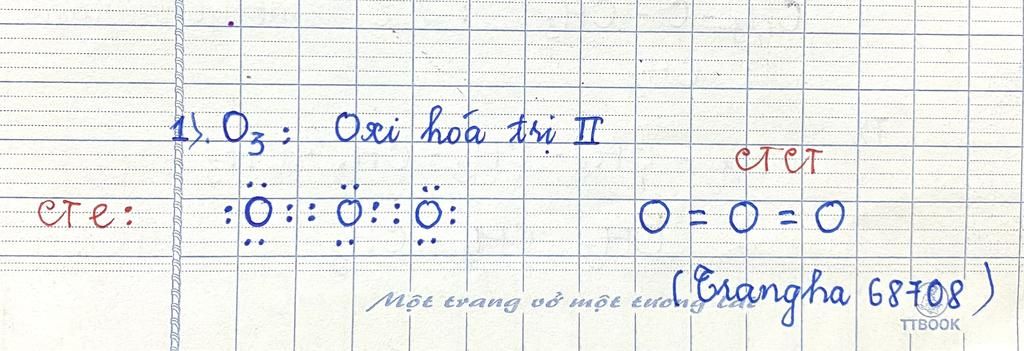 1). O₃: Oxi hoá trị II
CTCT
CTe: :Ö::Ö::Ö: O = O = O
(Trangha 68708)
Một trang vở một tương lai
TTBOOK